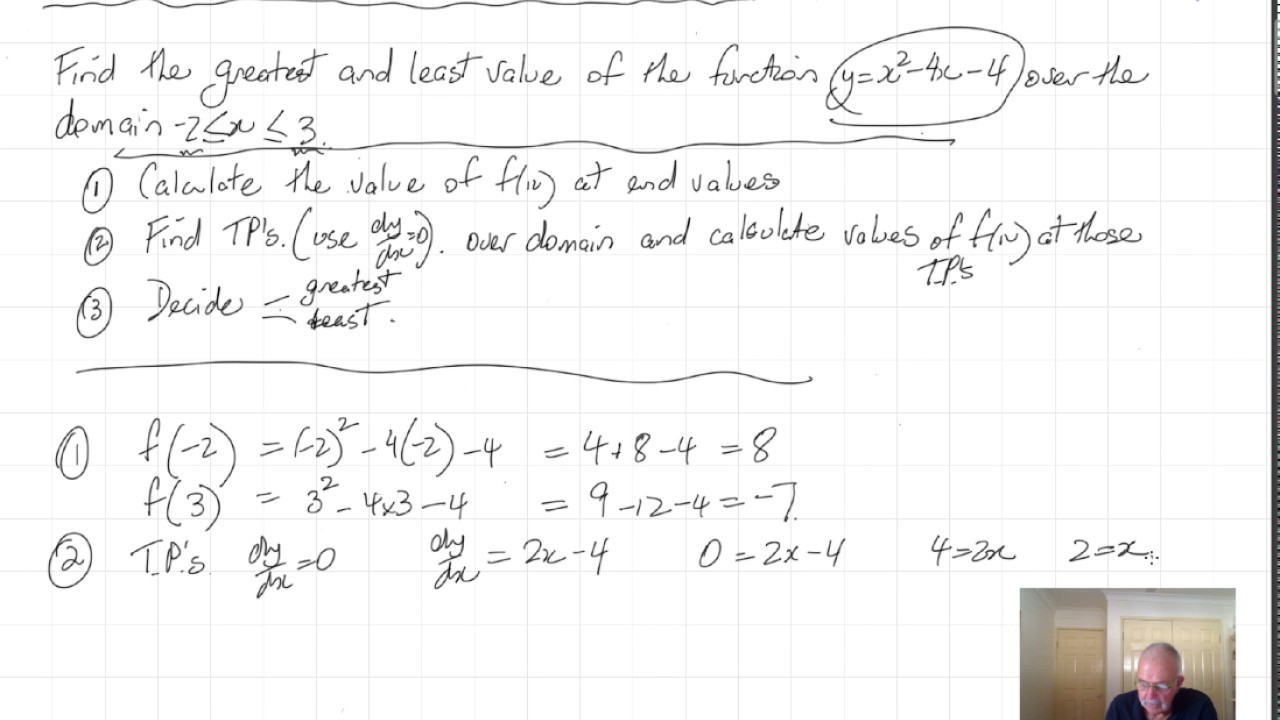 Find the greatest and least value of the function y=x²-4x-4 over the
domain -2≤x≤3.
① Calculate the value of f(x) at end values
② Find TP's. (use dy/dx=0). over domain and calculate values of f(x) at those
T.P.'s
③ Decide = greatest
least.
① f(-2) = (-2)² - 4(-2) - 4 = 4+8-4 = 8
f(3) = 3² - 4x3 - 4 = 9-12-4 = -7.
② T.P.'s. dy/dx=0 dy/dx = 2x-4 0 = 2x-4 4=2x 2=x